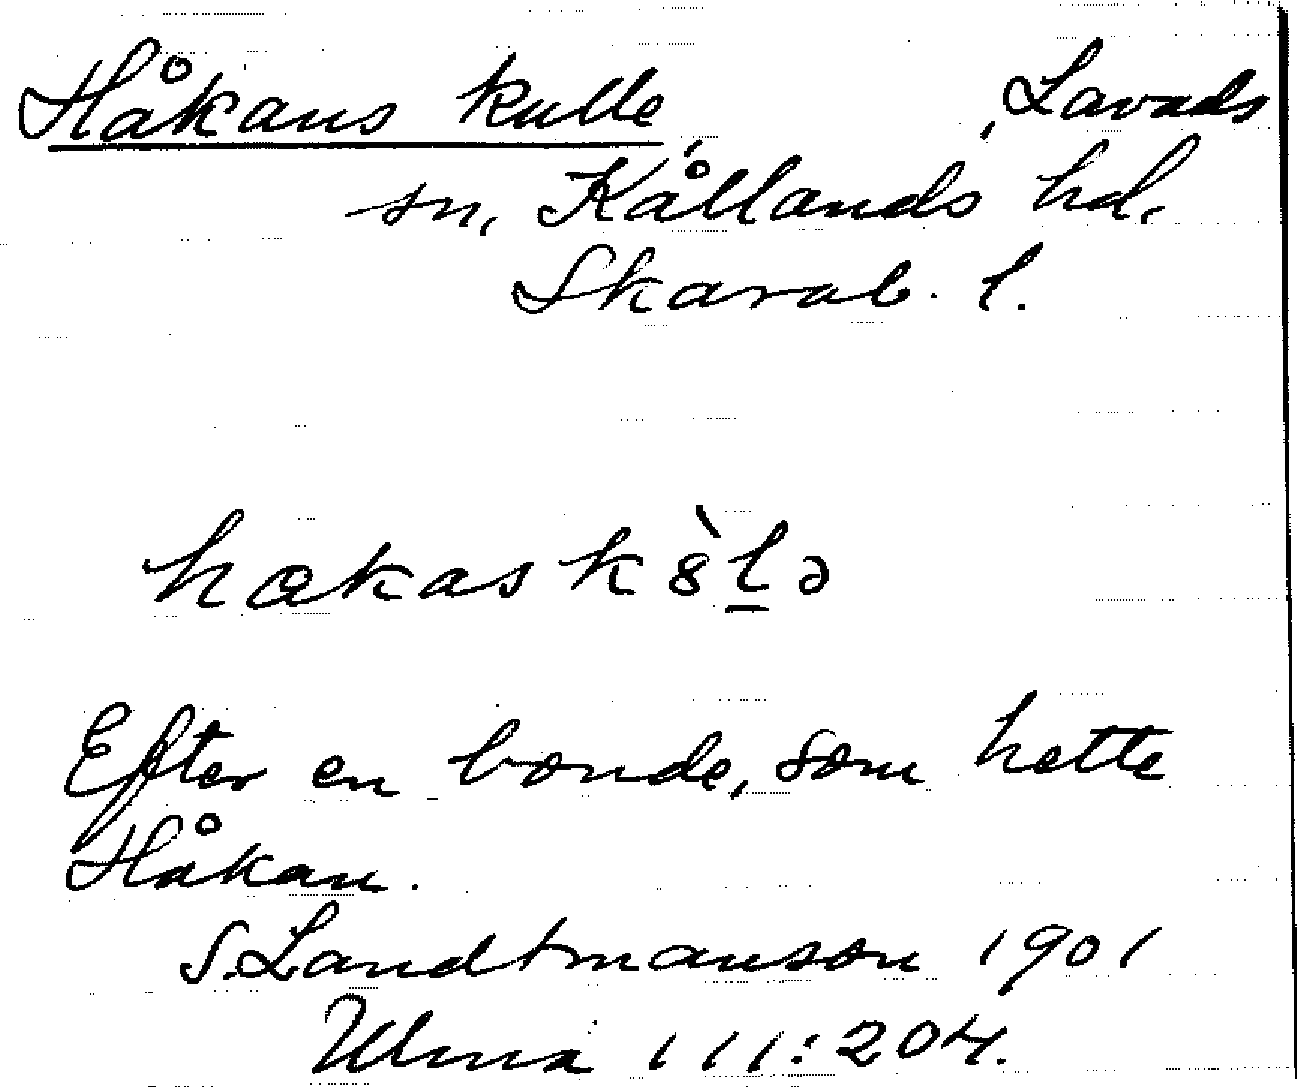 Håkans kulle, Lavads
sn, Kållands hd,
Skarab. l.
hakask8̀l̠ə
Efter en bonde, som hette
Håkan.
S. Landtmanson 1901
Ulma 111:204.